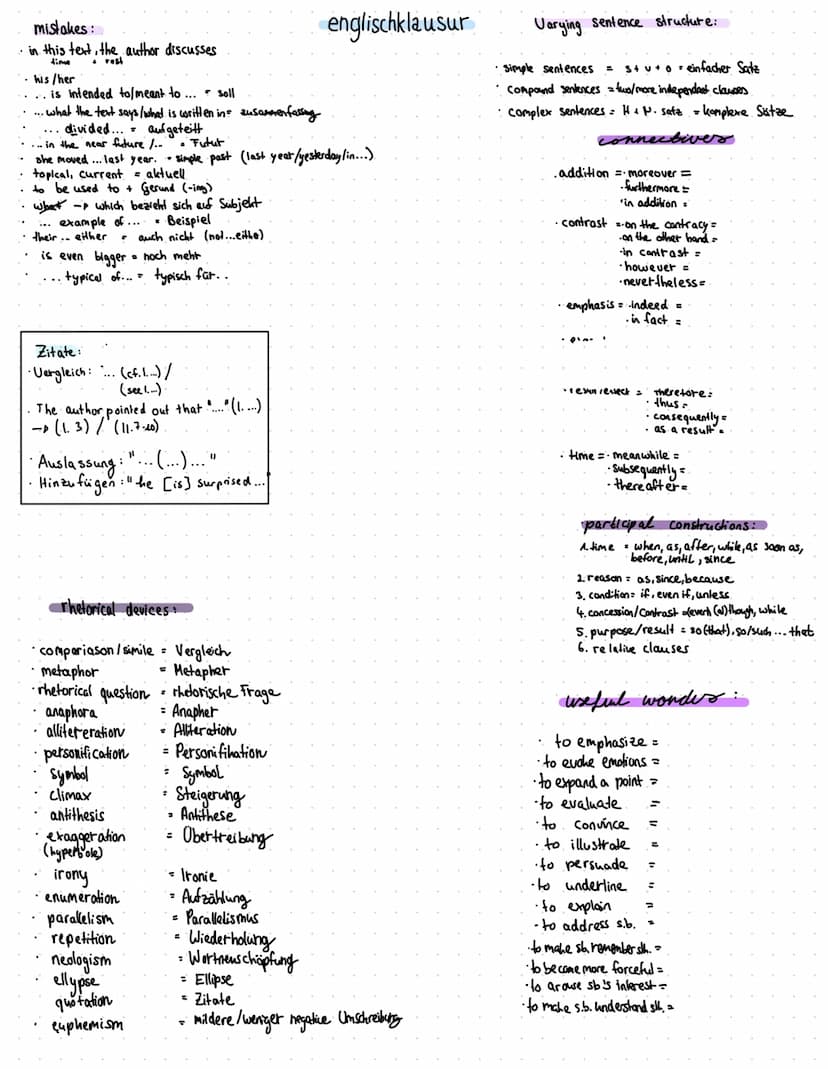 englischklausur
mistakes:
· in this text, the author discusses
time + rest
· his/her
· ... is intended to/meant to ... = soll
· ... what the text says/what is written in = zusammenfassung
· ... divided... = aufgeteilt
· ... in the near future /.. = Futur
· she moved ... last year. = simple past (last year/yesterday/in...)
· topical, current = aktuell
· to be used to + Gerund (-ing)
· what -> which bezieht sich auf Subjekt
· ... example of ... = Beispiel
· their .. either = auch nicht (not...either)
· is even bigger = noch mehr
· ... typical of... = typisch für..
Zitate:
· Vergleich: "... (cf.l...) /
(see l...)
· The author pointed out that "...." (l. ...)
-> (l. 3) / (ll. 7-10)
· Auslassung: "...(...)..."
· Hinzufügen: "he [is] surprised...
rhetorical devices:
· compariason/simile = Vergleich
· metaphor = Metapher
· rhetorical question = rhetorische Frage
· anaphora = Anapher
· alliteration = Alliteration
· personification = Personifikation
· symbol = Symbol
· climax = Steigerung
· antithesis = Antithese
· exaggeration = Übertreibung
(hyperbole)
· irony = Ironie
· enumeration = Aufzählung
· paralelism = Parallelismus
· repetition = Wiederholung
· neologism = Wortneuschöpfung
· ellypse = Ellipse
quotation = Zitate
· euphemism = mildere/weniger negative Umschreibung
Varying sentence structure:
· simple sentences = s+v+o = einfacher Satz
· compound sentences = two/more independent clauses
· complex sentences = H + N. satz = komplexe Sätze
connectives
· addition = · moreover =
· furthermore =
· in addition =
· contrast = · on the contracy =
· on the other hand =
· in contrast =
· however =
· nevertheless =
· emphasis = · indeed =
· in fact =
· therefore =
· thus =
· consequently =
· as a result =
· time = · meanwhile =
· subsequently =
· thereafter =
participal constructions:
1. time = when, as, after, while, as soon as,
before, until, since
2. reason = as, since, because
3. condition = if, even if, unless
4. concession/contrast = (even) (al)though, while
5. purpose/result = so (that), so/such ... that
6. relative clauses
useful wonders:
· to emphasize =
· to evoke emotions =
· to expand a point =
· to evaluate =
· to convince =
· to illustrate =
· to persuade =
· to underline =
· to explain =
- to address s.b. =
· to make sb. remember sth. =
· to become more forceful =
· to arouse sb's interest =
· to make s.b. understand sth. =